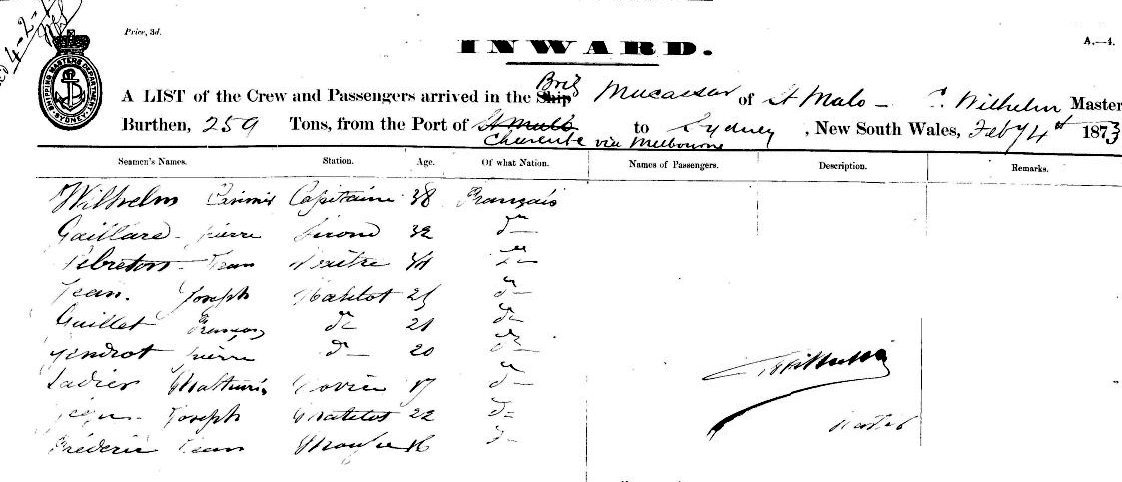 4-2-
Price, 3d.
INWARD.
A.—4.
SHIPPING MASTERS DEPARTMENT
SYDNEY
Brig
A LIST of the Crew and Passengers arrived in the Ship Macassar of St Malo — C. Wilhelm Master
Burthen, 259 Tons, from the Port of St Malo to Sydney, New South Wales, Feby 4th 1873
Charente via Melbourne
Seamen's Names. Station. Age. Of what Nation. Names of Passengers. Description. Remarks.
Wilhelm Casimir Capitaine 38 Français
Gaillard Pierre Second 32 do
Lebreton Jean Maître do
Jean. Joseph Matelot 25 do
Guillet François do 21 do
Gendrot Pierre do 20 do
Ladier Mathurin Novice 17 do
Joseph Matelot 22 do
Fréderic Jean Mousse 16 do
C Wilhelm
Master